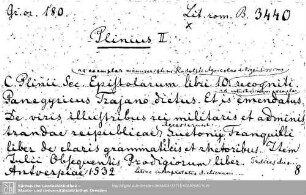 Gr. or. 180.
Lit. rom. B. 3440
Plinius II.
ad exemplar manuscriptum Rudolphi Agricolae
C. Plinii Sec. Epistolarum libri 10 recogniti.
Panegyricus Trajano dictus. Et is emendatus.
De viris illustribus rei militaris et adminis
trandae reipublicae. Suetonii Tranquilli
liber de claris grammaticis et rhetoribus. Item
Julii Obsequentis Prodigiorum liber.
Antverpiae 1532